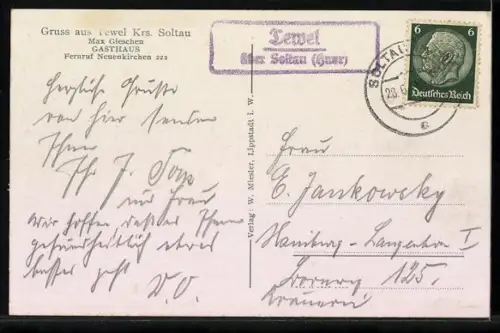 Gruss aus Tewel Krs. Soltau
Max Gieschen
GASTHAUS
Fernruf Neuenkirchen 222
Tewel
über Soltau (Hann)
SOLTAU
28.6
e
6 6
Deutsches Reich
Herzliche Grüße
von hier senden
Ihnen
Ihr J.
und Frau
Wir hoffen, daß es Ihnen
gesundheitlich etwas
besser geht
D.O.
Verlag: W. Miesler, Lippstadt i. W.
Frau
E. Jankowsky
Hamburg-Langenhorn I
125.